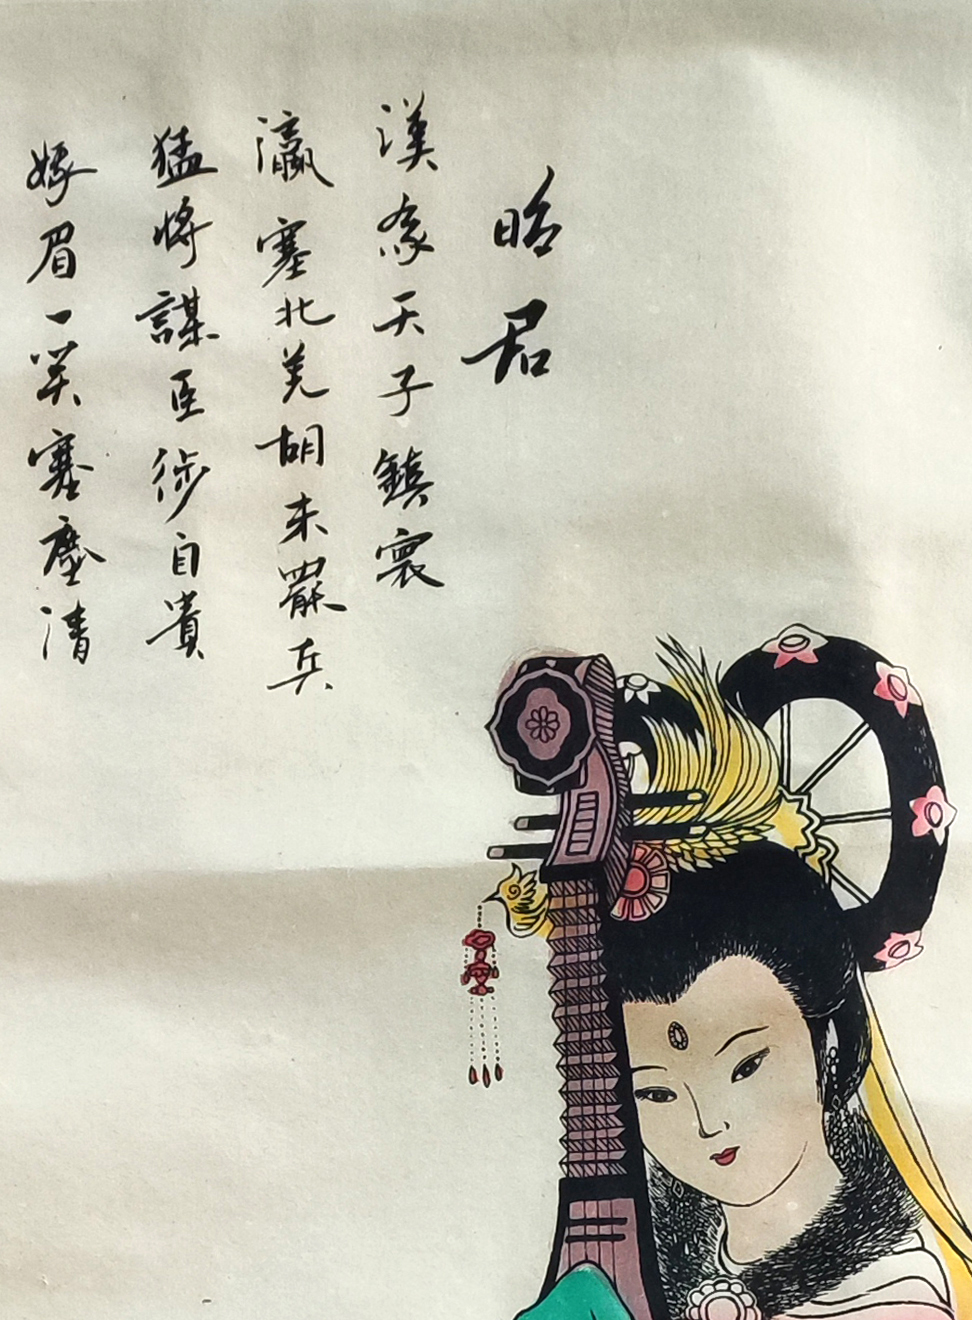 昭君
漢家天子鎮寰
瀛塞北羌胡未罷兵
猛將謀臣徒自貴
娥眉一笑塞塵清